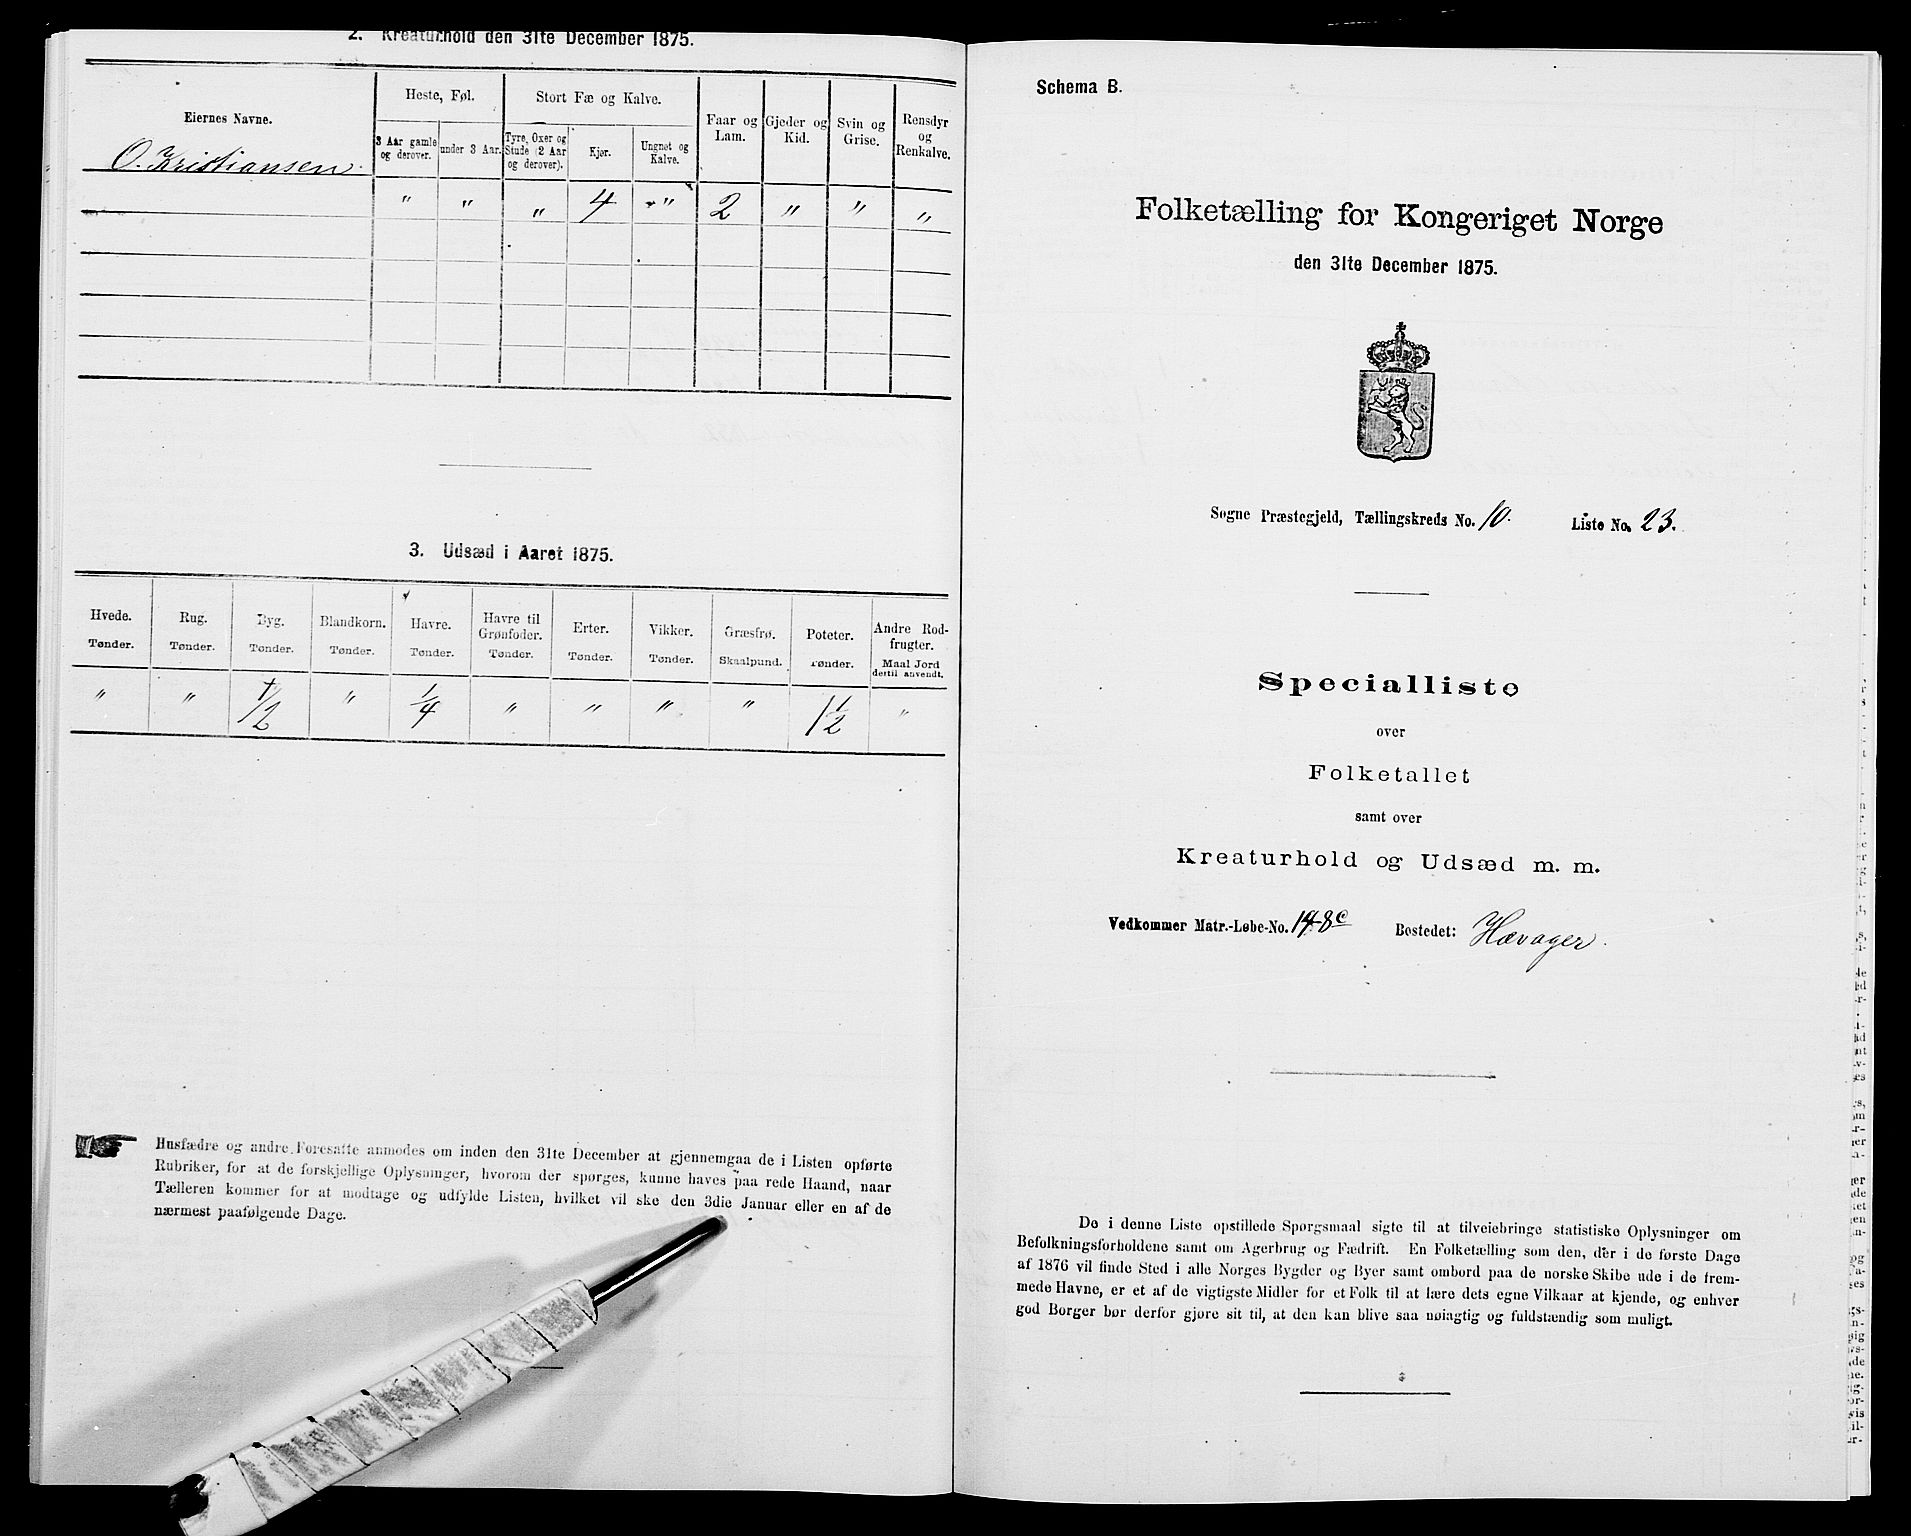 2. Kreaturhold den 31te December 1875.
Eiernes Navne.
Heste, Føl.
Stort Fæ og Kalve.
Faar og Lam.
Gjeder og Kid.
Svin og Grise.
Rensdyr og Renkalve.
3 Aar gamle og derover.
under 3 Aar.
Tyre, Oxer og Stude (2 Aar og derover).
Kjør.
Ungnøt og Kalve.
O. Kristiansen.
" " " 4 " 2 " " "
3. Udsæd i Aaret 1875.
Hvede. Rug. Byg. Blandkorn. Havre. Havre til Grønfoder. Erter. Vikker. Græsfrø. Poteter. Andre Rodfrugter.
Tønder. Tønder. Tønder. Tønder. Tønder. Tønder. Tønder. Tønder. Skaalpund. Tønder. Maal Jord dertil anvendt.
" " 1/2 " 1/4 " " " " 1 1/2 "
Husfædre og andre Foresatte anmodes om inden den 31te December at gjennemgaa de i Listen opførte
Rubriker, for at de forskjellige Oplysninger, hvorom der spørges, kunne haves paa rede Haand, naar
Tælleren kommer for at modtage og udfylde Listen, hvilket vil ske den 3die Januar eller en af de
nærmest paafølgende Dage.
Schema B.
Folketælling for Kongeriget Norge
den 31te December 1875.
Søgne Præstegjeld, Tællingskreds No. 10. Liste No. 23.
Specialliste
over
Folketallet
samt over
Kreaturhold og Udsæd m. m.
Vedkommer Matr.-Løbe-No. 148c Bostedet: Hævager.
De i denne Liste opstillede Spørgsmaal sigte til at tilveiebringe statistiske Oplysninger om
Befolkningsforholdene samt om Agerbrug og Fædrift. En Folketælling som den, der i de første Dage
af 1876 vil finde Sted i alle Norges Bygder og Byer samt ombord paa de norske Skibe ude i de frem-
mede Havne, er et af de vigtigste Midler for et Folk til at lære dets egne Vilkaar at kjende, og enhver
god Borger bør derfor gjøre sit til, at den kan blive saa nøiagtig og fuldstændig som muligt.